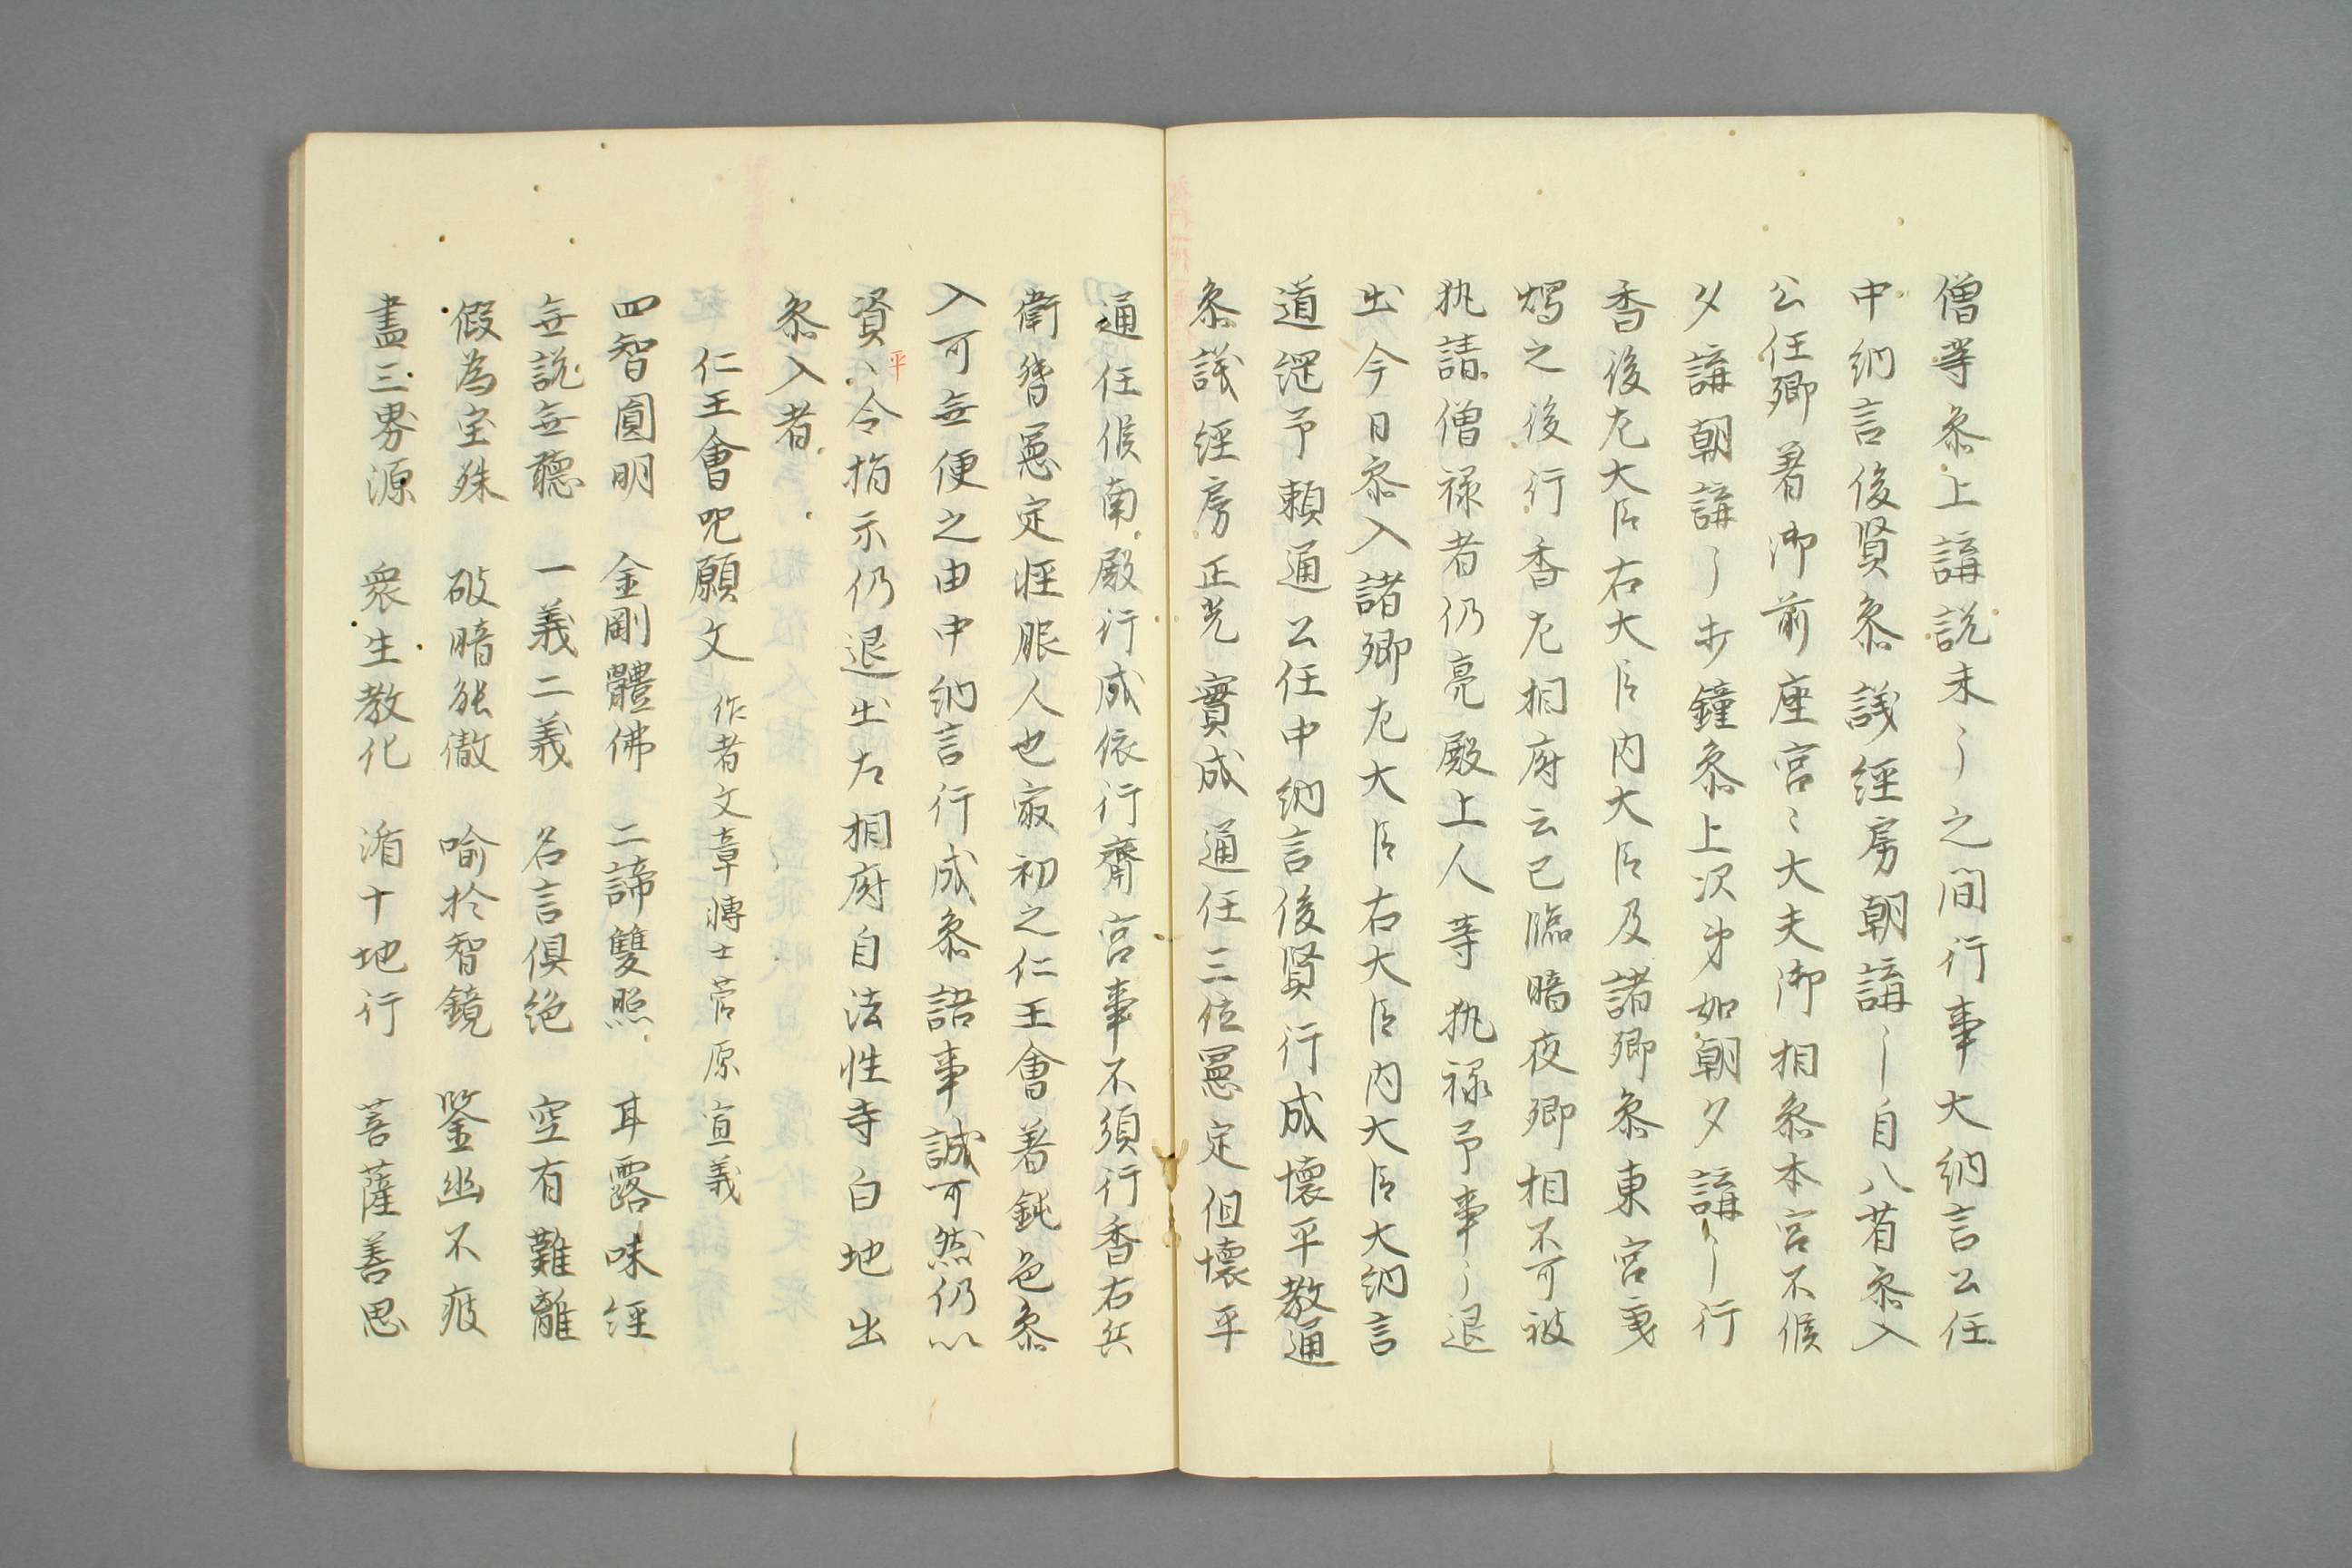 僧等参上講説未〻之間行事大納言公任
中納言俊賢参議経房朝講〻自八省参入
公任卿著御前座宮〻大夫御相参本宮不候
夕講朝講〻打鐘参上次第如朝夕講〻行
香後左大臣右大臣内大臣及諸卿参東宮戔
燭之後行香左相府云已臨暗夜卿相不可被
執請僧禄者仍亮殿上人等執禄予事〻退
出今日参入諸卿左大臣右大臣内大臣大納言
道綱予頼通公任中納言俊賢行成懐平教通
参議経房正光實成通任三位憲定但懐平
通任候南殿行成依行齊宮事不須行香右兵
衛督憲定軽服人也最初之仁王會著鈍色参
入可無便之由中納言行成参語事誠可然仍以
資平令指示仍退出左相府自法性寺白地出
参入者
仁王會呪願文 作者文章博士菅原宣義
四智圓明 金剛體佛 二諦雙照 耳露味経
無説無聴 一義二義 名言倶絶 空有難離
假為宝殊 破暗能徹 喩於智鏡 鑒幽不疲
盡三界源 衆生教化 濱十地行 菩薩善思